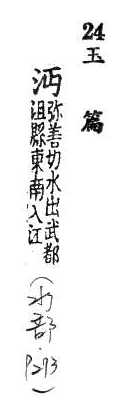 24
玉篇
沔弥善切水出武都
沮縣東南入江
(水部.P293)